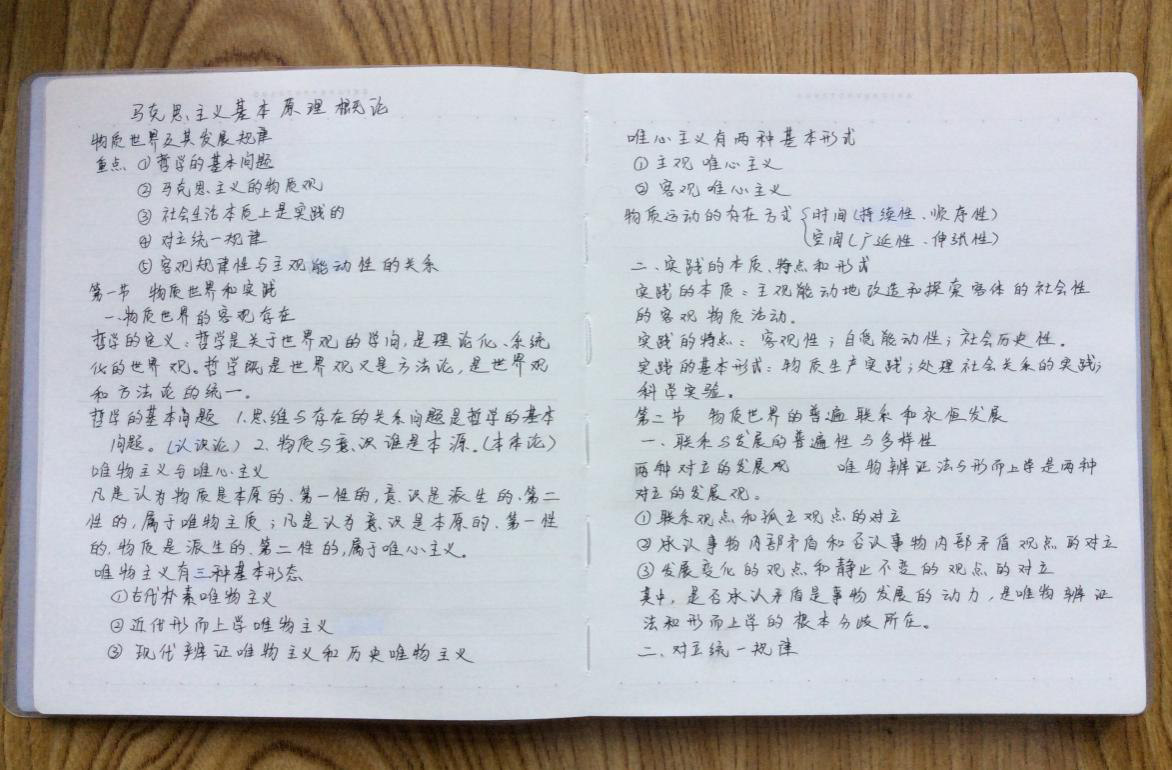 马克思主义基本原理概论
物质世界及其发展规律
重点 ①哲学的基本问题
②马克思主义的物质观
③社会生活本质上是实践的
④对立统一规律
⑤客观规律性与主观能动性的关系
第一节 物质世界和实践
一、物质世界的客观存在
哲学的定义：哲学是关于世界观的学问，是理论化、系统
化的世界观。哲学既是世界观又是方法论，是世界观
和方法论的统一。
哲学的基本问题 1.思维与存在的关系问题是哲学的基本
问题。(认识论) 2、物质与意识谁是本源。(本体论)
唯物主义与唯心主义
凡是认为物质是本原的、第一性的，意识是派生的、第二
性的，属于唯物主质；凡是认为意识是本原的、第一性
的，物质是派生的、第二性的，属于唯心主义。
唯物主义有三种基本形态
①古代朴素唯物主义
②近代形而上学唯物主义
③ 现代辨证唯物主义和历史唯物主义
唯心主义有两种基本形式
①主观唯心主义
②客观唯心主义
物质运动的存在方式{时间(持续性、顺序性)
空间(广延性、伸张性)
二、实践的本质、特点和形式
实践的本质：主观能动地改造和探索客体的社会性
的客观物质活动。
实践的特点：客观性；自觉能动性；社会历史性。
实践的基本形式：物质生产实践；处理社会关系的实践；
科学实验。
第二节 物质世界的普遍联系和永恒发展
一、联系与发展的普遍性与多样性
两种对立的发展观 唯物辨证法与形而上学是两种
对立的发展观。
①联系观点和孤立观点的对立
②承认事物内部矛盾和否认事物内部矛盾观点的对立
③发展变化的观点和静止不变的观点的对立
其中，是否承认矛盾是事物发展的动力，是唯物辨证
法和形而上学的根本分歧所在。
二、对立统一规律